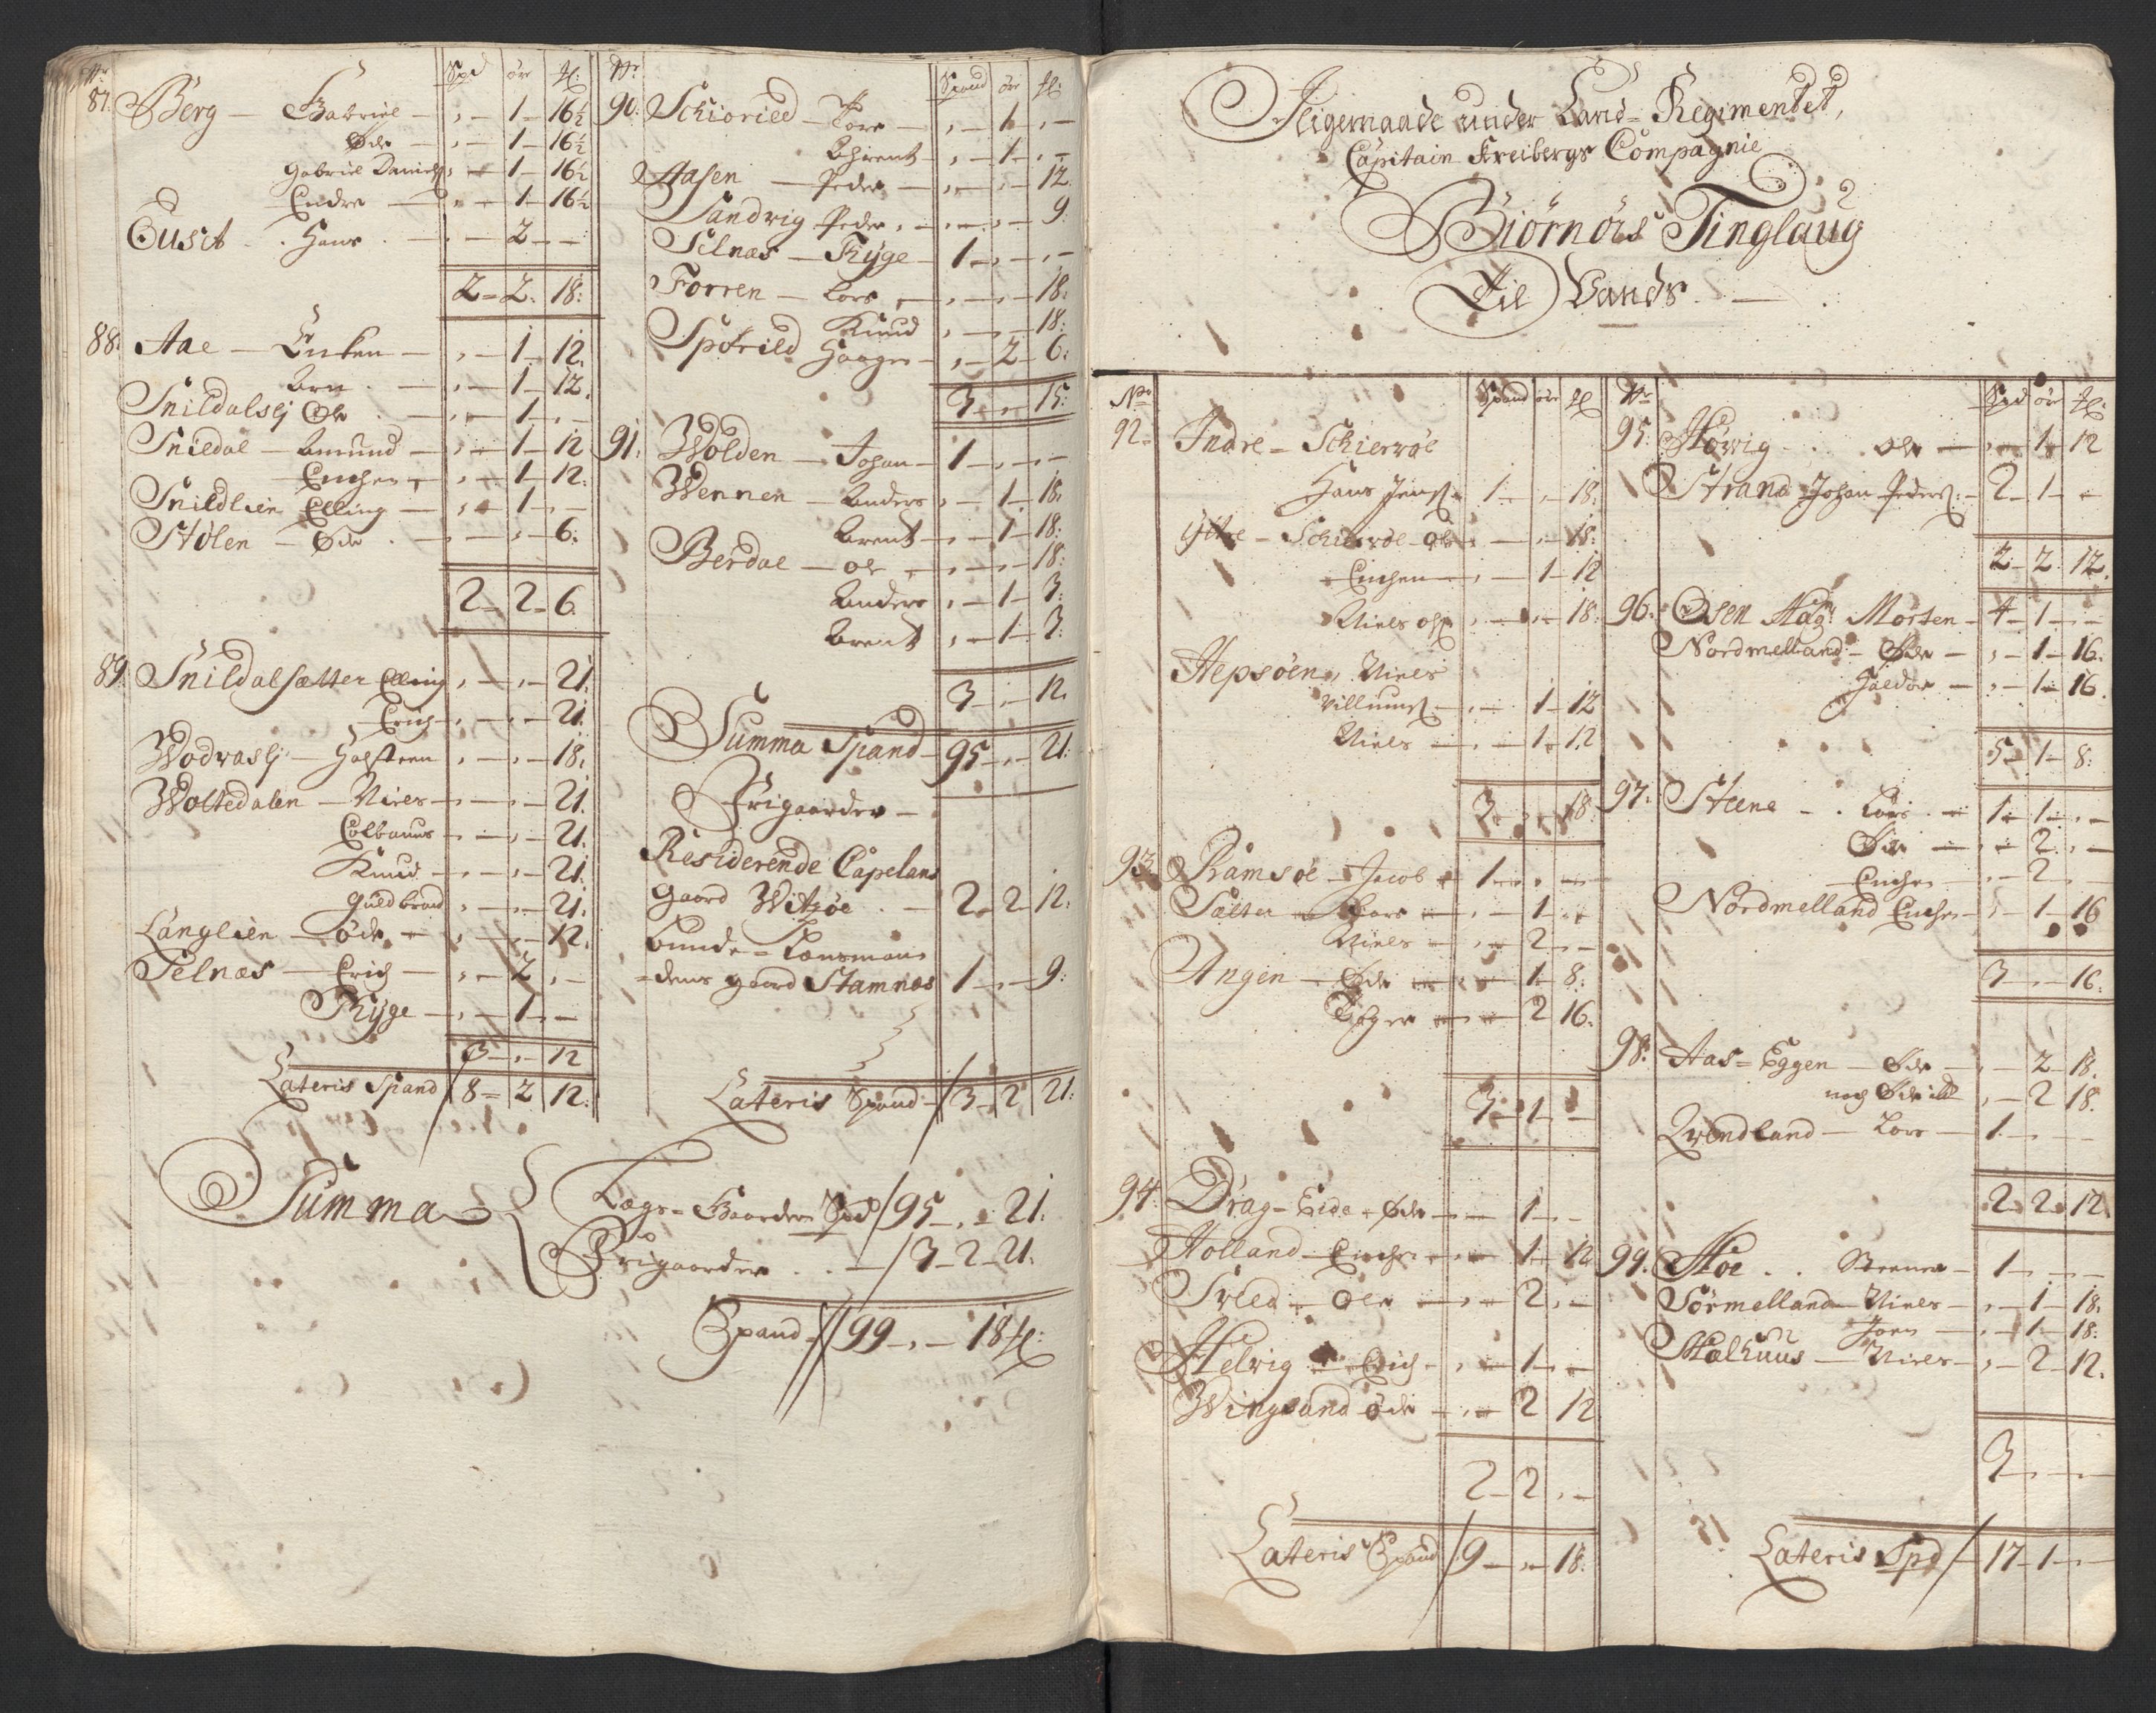 Nr Spd öre Ml:
87. Berg — Gabriel — , — 1 — 16½
Øde — , — 1 — 16½
Gabriel Daniels: , — 1 — 16½
Endre — , — 1 — 16½
Cusit . . Hans . — , — 2 — —
2 — 2. 18:
88. Aae — Encken — , — 1. 12.
Arn . — , — 1 — 12.
Snildalslj Ole . — , — 1. , —
Snildal — Amund — , — 1 — 12
Encher , — 1 — 12:
Snildlien Elling — , — 1. , —
Stølen — Øde . — , — , — 6:
2 — 2 — 6.
89. Snildalsætter Elling , — , — 21.
Erich — , — , — 21.
Wodraslj — Halsteen , — , — 18.
Woltedalen — Niels — , — , — 21.
Colbanus — , — , — 21.
Knud — , — , — 21.
Guldbrand , — , — 21.
Langlien — Øde — , — , — 12.
Selnæs — Erich — , — 2. , —
Tryge — , — 1. , —
3 — , — 12
Lateris Spand / 8 = 2 12:
Nr Spand öre Ml:
90. Schioried — Tore — , — 1. , —
Bhrent — , — 1. , —
Aasen — Peder — , — , — 12.
Sandvig Peder , — , — , — 9.
Selnæs — Tryge — 1 — , — , —
Forren — Lars , — , — , — 18.
Knud , — , — 18:
Spotrild Haagen — , — 2 — 6.
3 — , — 15:
91. Wolden — Johan — 1 — , — , —
Wennen — Anders , — 1 — 18.
Brent — , — 1 — 18:
Berdal — Ole , — , — , — 18:
Anders , — 1 — 3:
Brent , — 1 — 3:
3 — , — 12.
Summa Spand — 95 — , — 21:
Frigaarder —
Residerende Capelans
Gaard Witzøe . — 2 — 2 — 12.
Bunde = Lensman-
=dens gaard Stamnæs 1 — , — 9:
Lateris Spand / 3 — 2 21:
Summa
Lægs = Gaarder Spd / 95 — , — 21.
Frigaarder . . — / 3 — 2 — 21.
Spand // 99 — , — 18 Ml:
Iligemaade under Land = Regimentet,
Capitain Freibergs Compagnie
Biørnørs Tinglaug
Til Lands . —
Nr Spand öre Ml
92. Indre — Schierröe
Hans Jens: 1 — , — 18.
Ÿttre — Schierröe — Ole , — , — 18:
Enchen — , — 1 — 12
Niels Ols: , — , — 18:
Hepsöen, Niels
Villums: — , — 1 — 12
Niels — , — 1 — 12
3 — , — 18.
93. Ramsöe — Jacob — 1 — , — , —
Sætter — Lars — , — 1 — , —
Niels — , — 2 — , —
Angen — Øde — , — 1 — 8.
Holger — , — 2 16.
3 — 1 — , —
94. Drag = Eide — Øde — , — 1 — , —
Holland — Encher — , — 1 — 12
Sved — Ole — , — 2. , —
Helvig — Erich — , — 1 — , —
Wingsand Øde — , — 2 12
2 — 2 . , —
Lateris Spand / 9 — , — 18:
Nr Spd öre Ml:
95. Hovig . . Ole — , — 1 — 12
Strand Johan Peders: — 2 — 1 — , —
2 — 2. 12.
96. Osen Hagr Morten — 4 — 1 — , —
Nordmelland — Øde — , — 1 — 16.
Haldor — , — 1 — 16.
5 — 1 — 8:
97. Steene — . Lars . — 1 — 1 — , —
Øde — , — 2 . , —
Encher — , — 2 — , —
Nordmelland Encher — , — 1 — 16
3 — , — 16.
98. Aas = Eggen — Øde — , — 2 — 18.
noch Øde ibd , — 2 18.
Qvendland — Lars — 1 — , — , —
2 — 2 — 12.
99. Hoe . . Steener — 1 — , — , —
Sörmelland — Niels — , — 1 — 18.
Joen — , — 1 — 18:
Malhuus — Niels — , — 2 — 12.
3 — , — , —
Lateris Spd / — 17 — 1 — , —